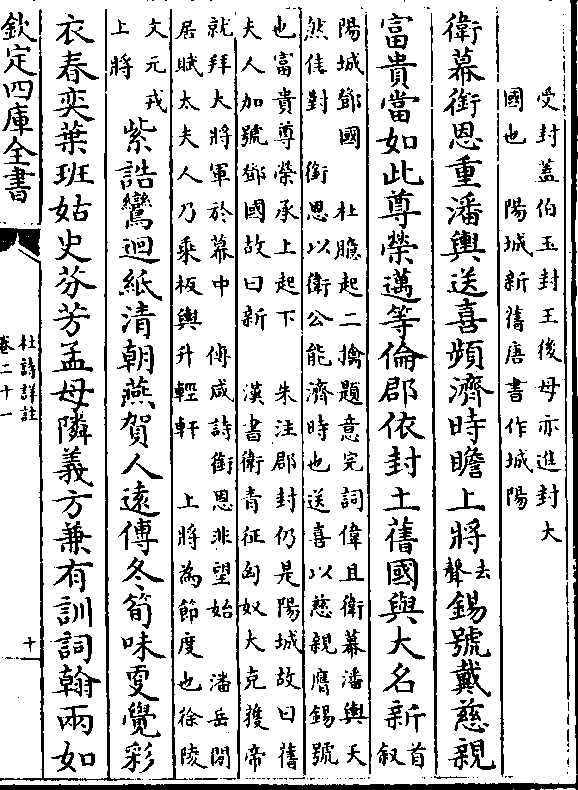 受封蓋伯玉封王後母亦進封大
國也　陽城新舊唐書作城陽
衛幕銜恩重潘輿送喜頻濟時瞻上將去聲錫號戴慈親
富貴當如此尊榮邁等倫郡依封土舊國與大名新首敘
陽城鄧國　杜臆起二擒題意完詞偉且衛幕潘輿天
然佳對　銜恩以衛公能濟時也送喜以慈親膺錫號
也富貴尊榮承上起下　朱注郡封仍是陽城故曰舊
夫人加號鄧國故曰新　漢書衛青征匈奴大克獲帝
就拜大將軍於幕中　傅咸詩銜恩非望始　潘岳閒
居賦太夫人乃乘板輿升輕軒　上將為節度也徐陵
文元戎
上將
紫誥鸞迴紙清朝燕賀人遠傳冬筍味更覺彩
衣春奕葉班姑史芬芳孟母隣義方兼有訓詞翰兩如
欽定四庫全書
杜詩詳註
卷二十一
十